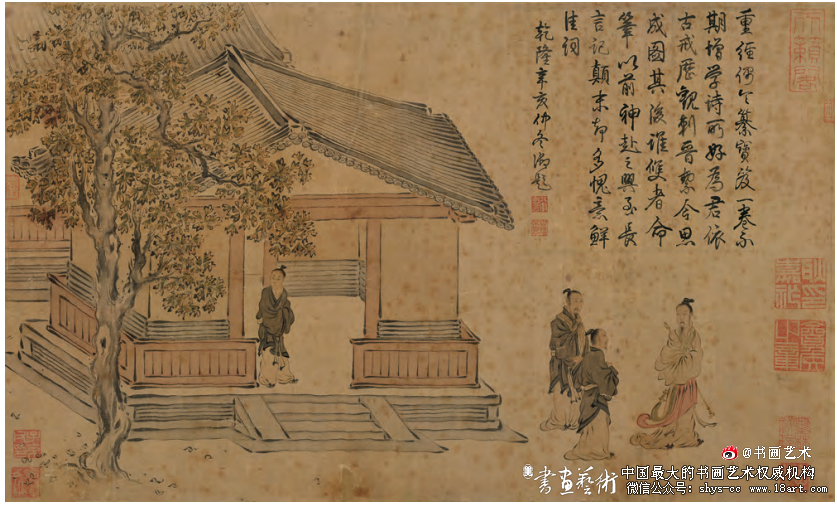 重經纂寶一卷不
期增學詩所好為君依
古戒歷觀刺晉繫今思
成圖其後誰者命
筆以前神赴之興長
言記顛末却多愧意鮮
佳詞
乾隆辛亥仲冬御題
@书画艺术
書畫藝術
中国最大的书画艺术权威机构
微信公众号：shys-cc www.18art.com